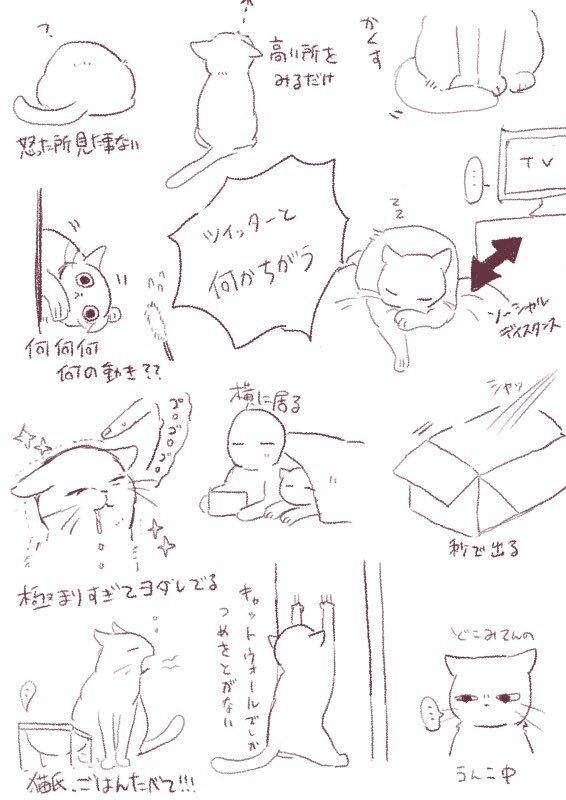 ?
怒った所見た事ない
高い所を
みるだけ
かくす
ツイッターと
何かちがう
TV
zz
ソーシャル
ディスタンス
何何何
何の動き??
ゴロゴロゴロ
極まりすぎてヨダレでる
横に居る
シャッ
秒で出る
猫氏、ごはんたべて!!!
キャットウォールでしか
つめをとがない
どこみてんの
うんこ中